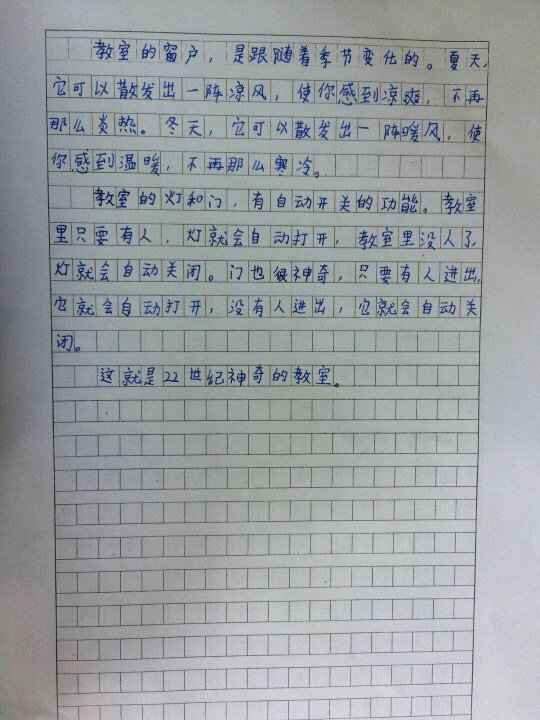 教室的窗户，是跟随着季节变化的。夏天，
它可以散发出一阵凉风，使你感到凉爽，不再
那么炎热。冬天，它可以散发出一阵暖风，使
你感到温暖，不再那么寒冷。
教室的灯和门，有自动开关的功能。教室
里只要有人，灯就会自动打开，教室里没人了，
灯就会自动关闭。门也很神奇，只要有人进出，
它就会自动打开，没有人进出，它就会自动关
闭。
这就是22世纪神奇的教室。